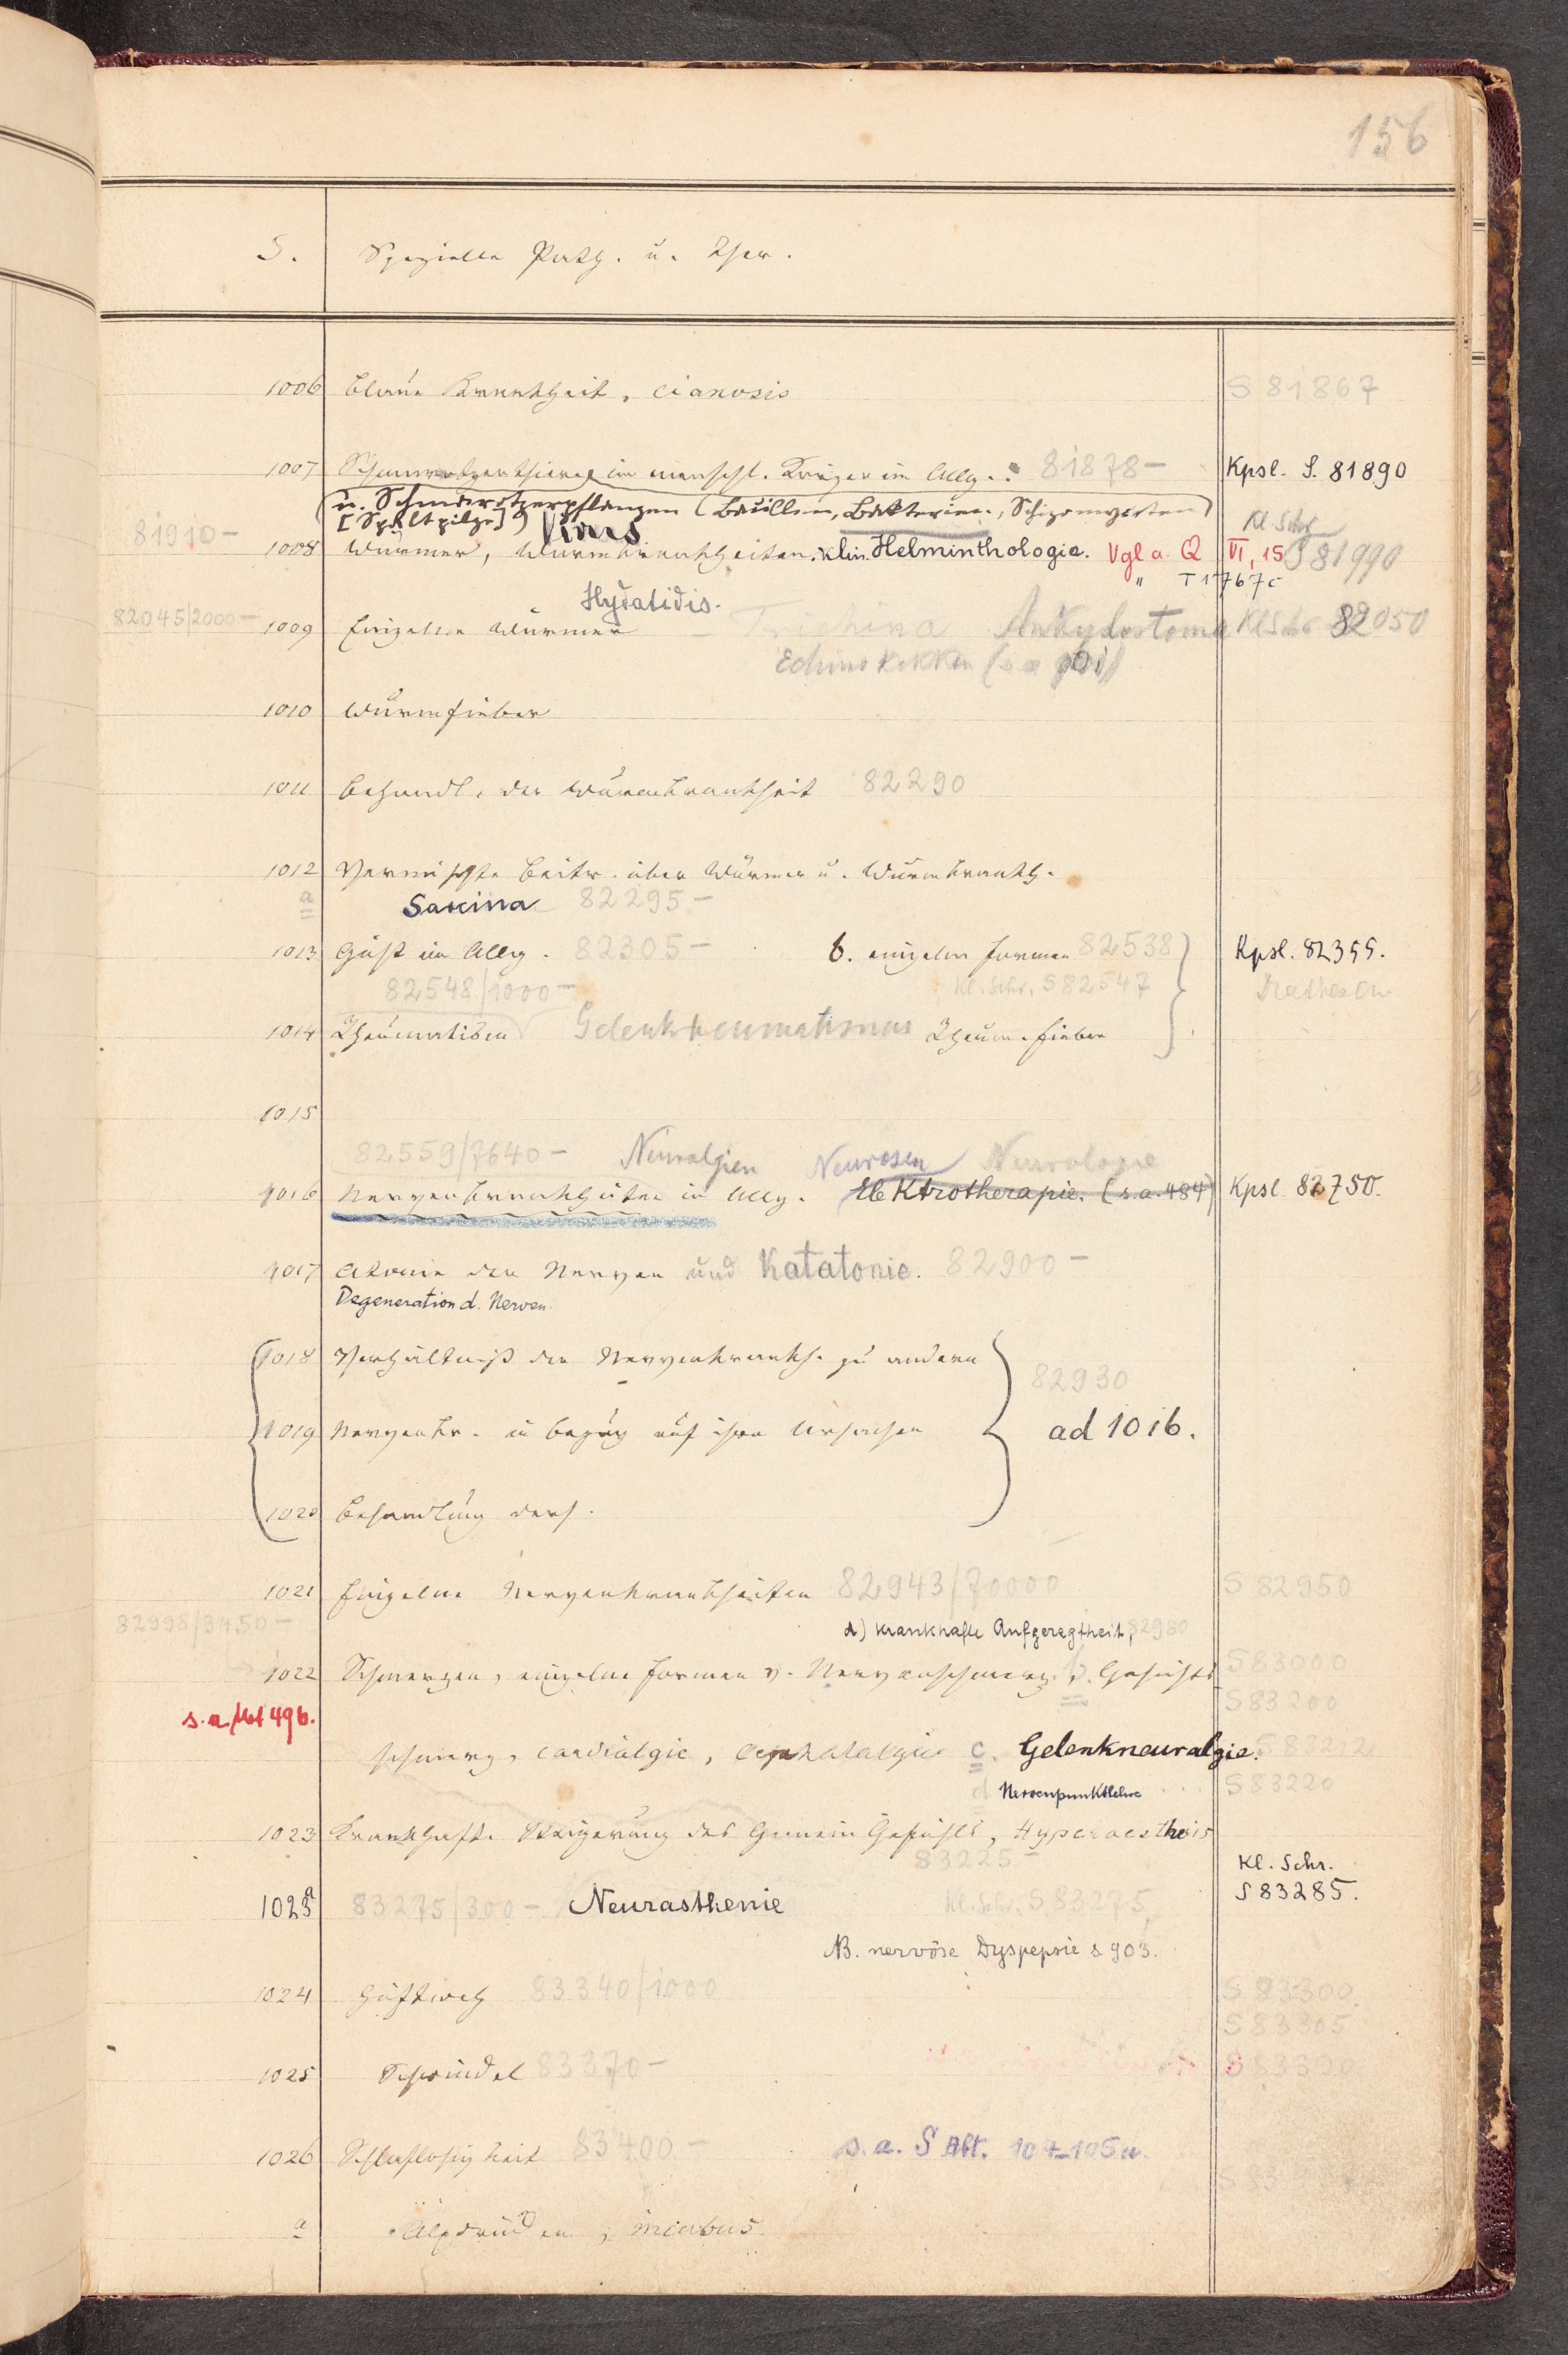 156
S. Spezielle Path. u. Ther.
1006 blaue Krankheit, cianosis S 81867
1007 Schmarotzerthiere im menschl. Körper im Allg. 81878— Kpsl. S. 81890
u. Schmarotzerpflanzen (Bacillen, Bakterien, Schizomyceten)
[Spaltpilze] Virus Kl Schr
81910—
1008 Würmer, Wurmkrankheiten. klin. Helminthologie. Vgl a. Q VI, 15 S 81990
" T 1767c
Hydatidis.
82045/2000— 1009 Einzelne Würmer — Trichina Ankylostoma Kl Schr 82050
Echinokokken (s a
1010 Wurmfieber
1011 Behandl. der Wurmkrankheit 82290
1012 Vermischte Beitr. über Würmer u. Wurmkrankh.
a Sarcina 82295—
1013 Gicht im Allg. 82305— b. einzelne Formen 82538 Kpsl. 82355.
82548/1000— Kl. Schr. S 82547
1014 Rheumatism Gelenkrheumatismus Rheum. fieber
1015
82559/7640— Neuralgien Neurosen Neurologie
1016 Nervenkrankheiten im Allg. Elektrotherapie. (s. a. 484) Kpsl. 82750.
1017 Atonie der Nerven und Katatonie. 82900—
Degeneration d. Nerven.
1018 Verhältniß der Nervenkrankh. zu andern
82930
1019 Nervenkr. in bezug auf ihre Ursachen ad 1016.
1020 Behandlung ders.
1021 Einzelne Nervenkrankheiten 82943/70000 S 82950
82998/3450— d) krankhafte Aufgeregtheit, 82980
1022 Schmerzen, einzelne Formen v. Nervenschmerz. b. Gesichts S 83000
S 83200
s. a. 496.
schmerz, cardialgie, cephalalgie c. Gelenkneuralgie.
d Nervenpunktlehre S 83220
1023 Krankhafte Steigerung des Gemein Gefühls, Hyperaesthesis
83225—
Kl. Schr.
1023a 83275/300— Neurasthenie Kl. Schr. S 83275 S 83285.
NB. nervöse Dyspepsie s 903.
1024 Hüftweh 83340/1000 S 83300
S 83305
1025 Schwindel 83370— S 83390
1026 Schlaflosigkeit 83400— s. a. S Abt. 104-105a.
a Alpdrücken, incubus.